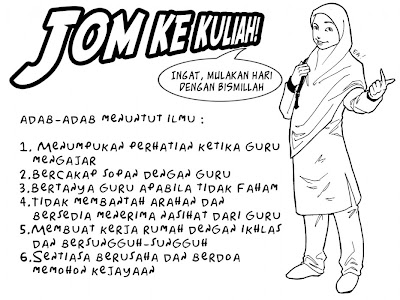 JOM KE KULIAH!
INGAT, MULAKAN HARI
DENGAN BISMILLAH
ADAB-ADAB MENUNTUT ILMU :
1. MENUMPUKAN PERHATIAN KETIKA GURU
MENGAJAR
2.BERCAKAP SOPAN DENGAN GURU
3.BERTANYA GURU APABILA TIDAK FAHAM
4.TIDAK MEMBANTAH ARAHAN DAN
BERSEDIA MENERIMA NASIHAT DARI GURU
5.MEMBUAT KERJA RUMAH DENGAN IKHLAS
DAN BERSUNGGUH-SUNGGUH
6.SENTIASA BERUSAHA DAN BERDOA
MEMOHON KEJAYAAN